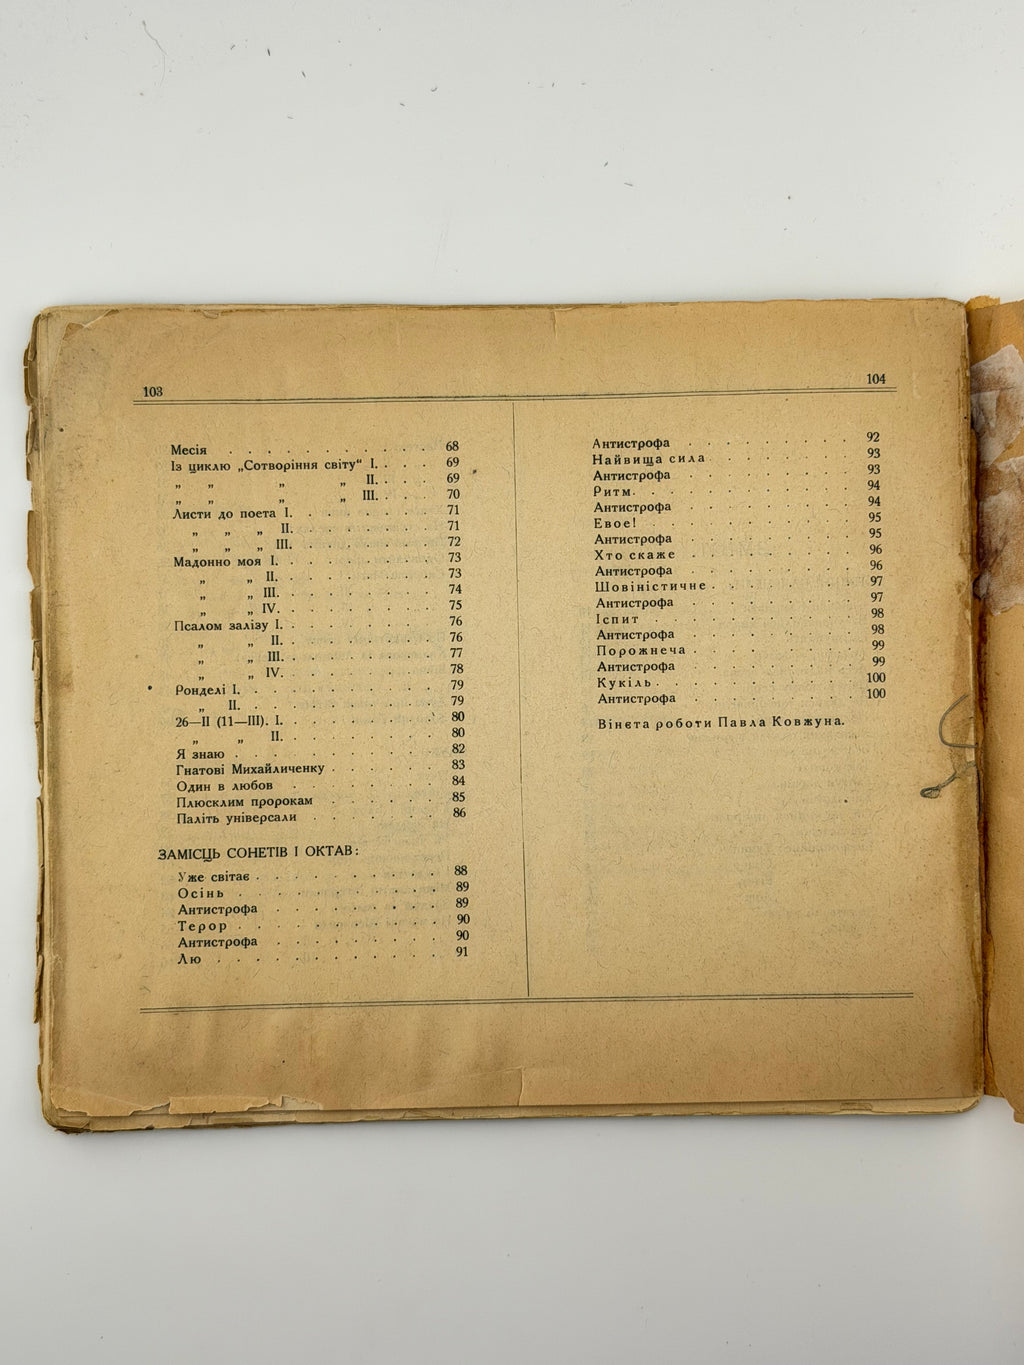 103
Месія . . . . . . . . . . 68
Із циклю „Сотворіння світу“ I. . . . 69
„ „ „ „ II. . . . 69
„ „ „ „ III. . . . 70
Листи до поета I. . . . . . . . 71
„ „ „ II. . . . . . . . 71
„ „ „ III. . . . . . . . 72
Мадонно моя I. . . . . . . . . 73
„ „ II. . . . . . . . . 73
„ „ III. . . . . . . . . 74
„ „ IV. . . . . . . . . 75
Псалом залізу I. . . . . . . . . 76
„ „ II. . . . . . . . . 76
„ „ III. . . . . . . . . 77
„ „ IV. . . . . . . . . 78
Ронделі I. . . . . . . . . . 79
„ II. . . . . . . . . . 79
26—II (11—III). I. . . . . . . . . 80
„ „ II. . . . . . . . . 80
Я знаю . . . . . . . . . . . 82
Гнатові Михайличенку . . . . . . 83
Один в любов . . . . . . . . 84
Плюсклим пророкам . . . . . . 85
Паліть універсали . . . . . . . 86
ЗАМІСЦЬ СОНЕТІВ І ОКТАВ:
Уже світає . . . . . . . . . . 88
Осінь . . . . . . . . . . . 89
Антистрофа . . . . . . . . . 89
Терор . . . . . . . . . . . 90
Антистрофа . . . . . . . . . 90
Лю . . . . . . . . . . . . 91
104
Антистрофа . . . . . . . . . 92
Найвища сила . . . . . . . . 93
Антистрофа . . . . . . . . . 93
Ритм. . . . . . . . . . . . 94
Антистрофа . . . . . . . . . 94
Евое! . . . . . . . . . . . 95
Антистрофа . . . . . . . . . 95
Хто скаже . . . . . . . . . 96
Антистрофа . . . . . . . . . 96
Шовіністичне . . . . . . . . 97
Антистрофа . . . . . . . . . 97
Іспит . . . . . . . . . . . 98
Антистрофа . . . . . . . . . 98
Порожнеча . . . . . . . . . 99
Антистрофа . . . . . . . . . 99
Кукіль . . . . . . . . . . . 100
Антистрофа . . . . . . . . . 100
Вінєта роботи Павла Ковжуна.